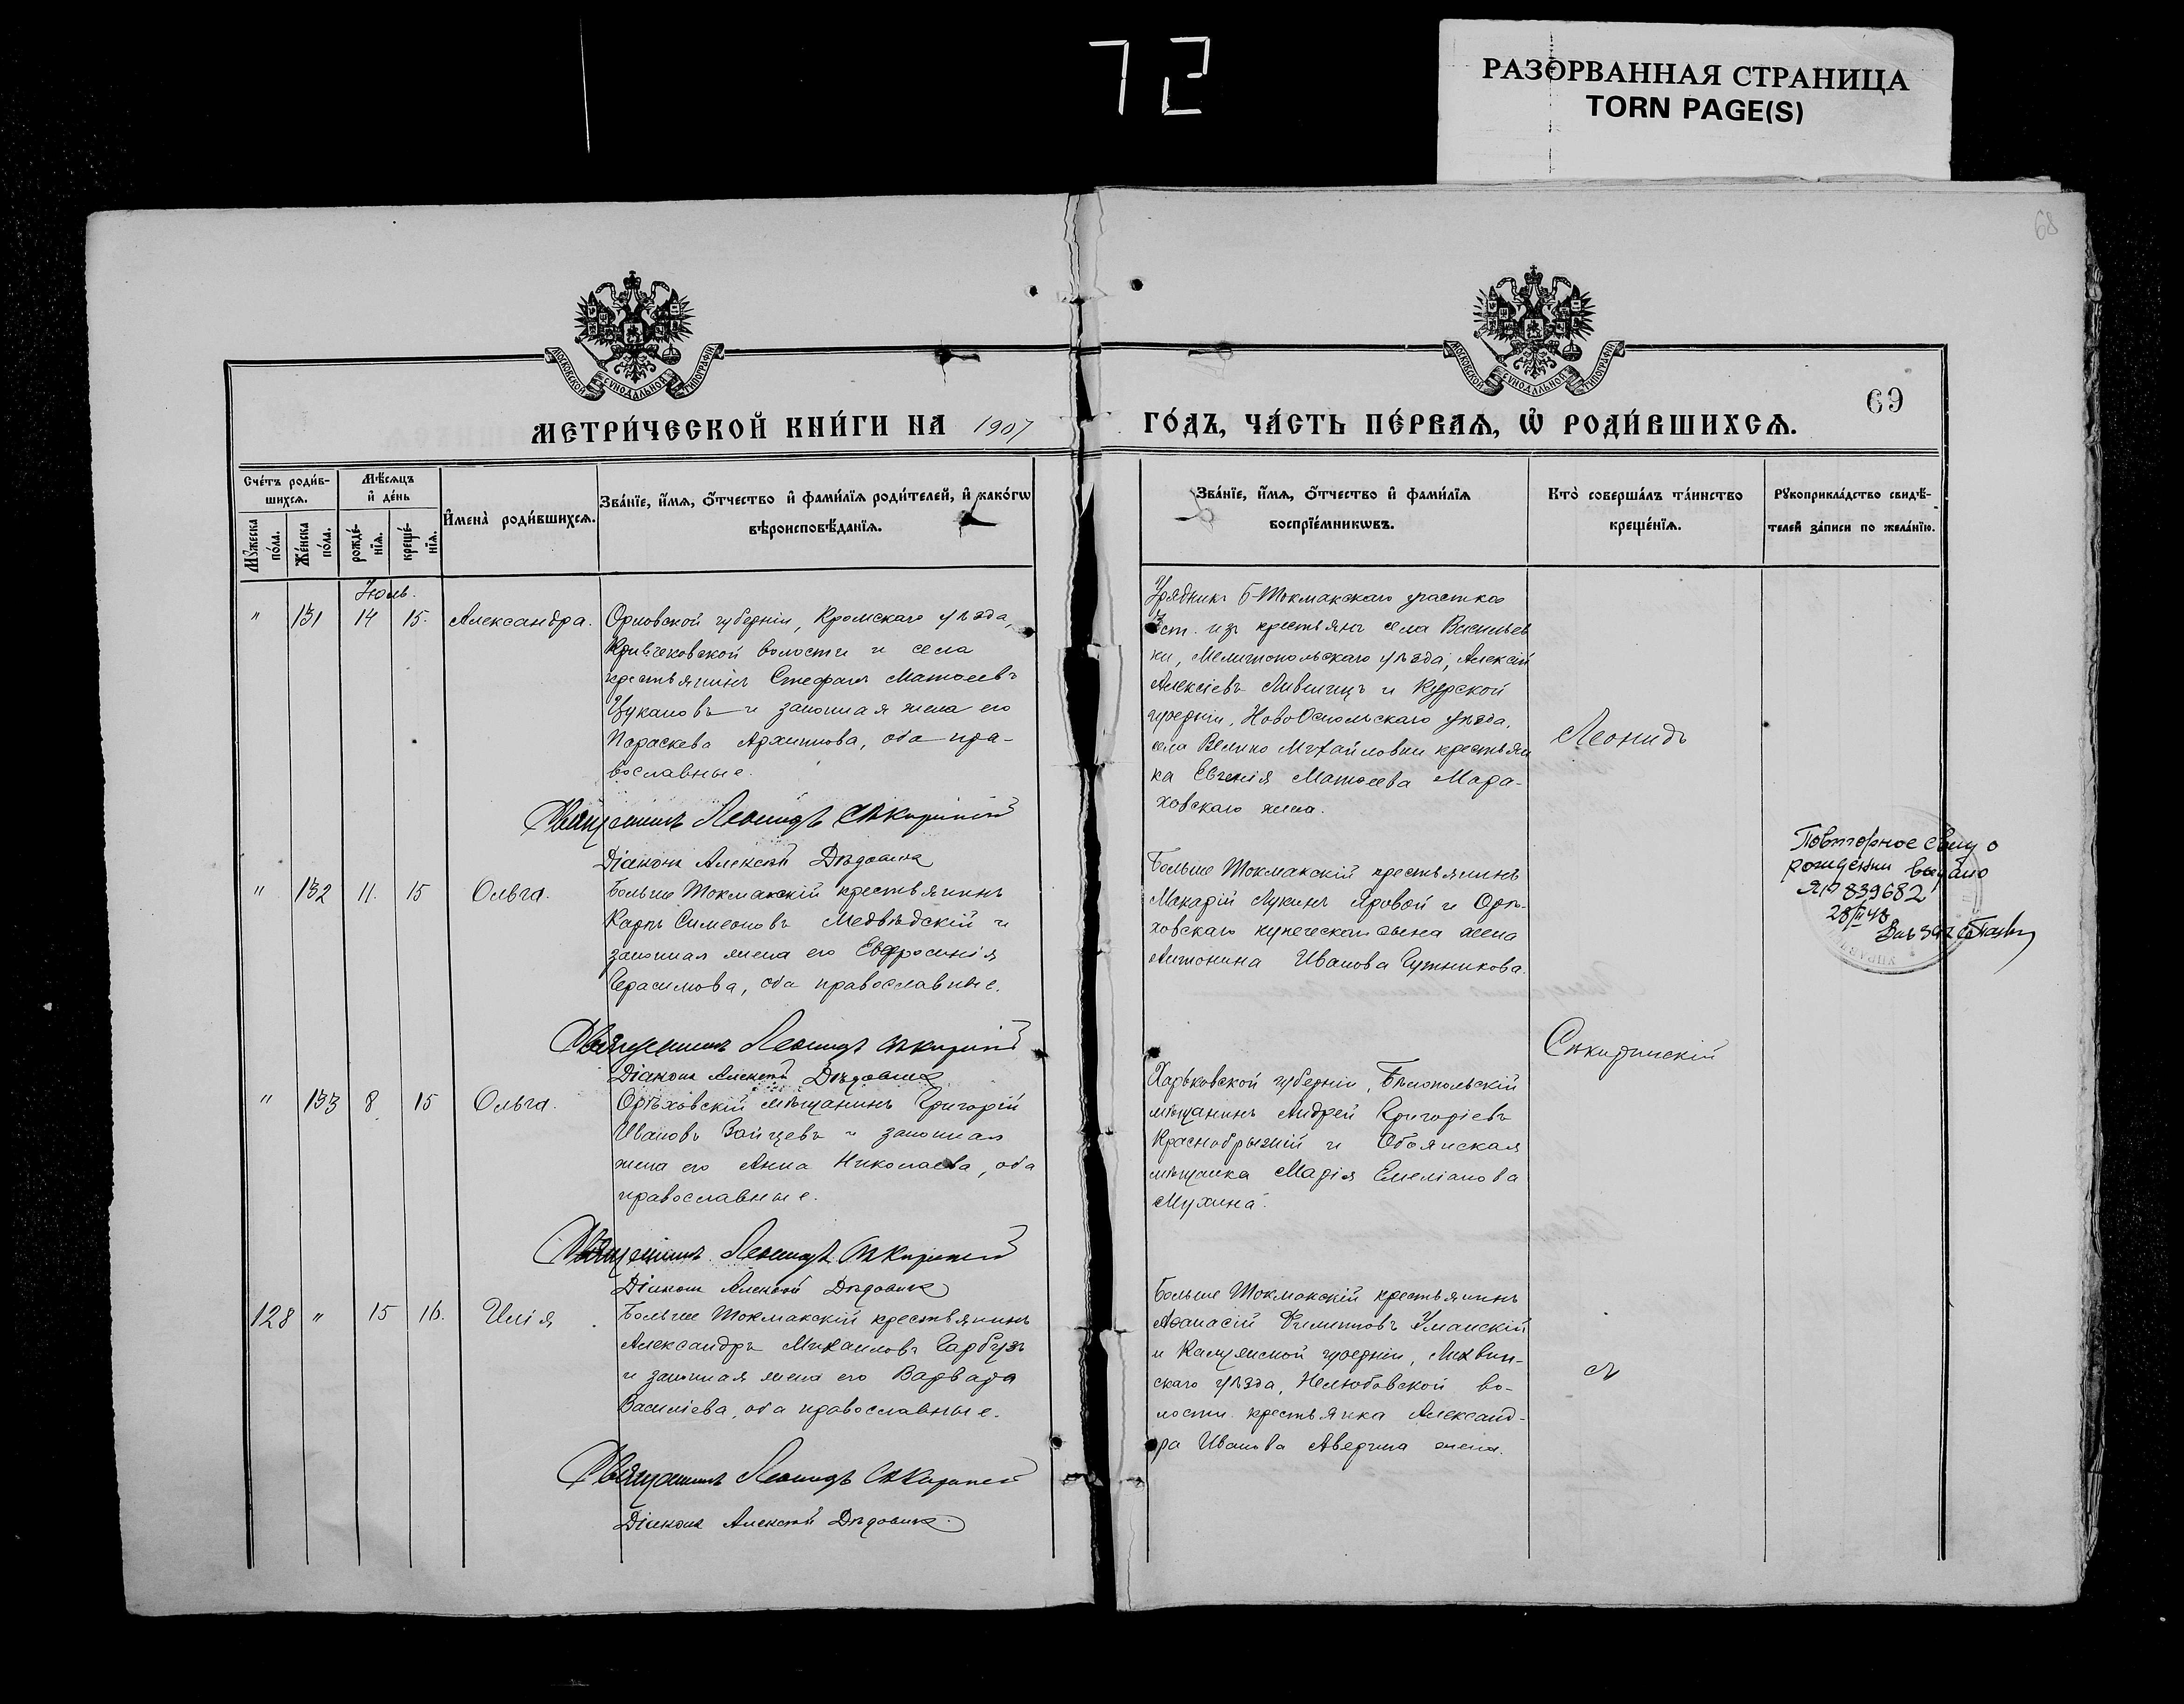 72
РАЗОРВАННАЯ СТРАНИЦА
TORN PAGE(S)
68
МОСКОВСКОЙ СѴНОДАЛЬНОЙ ТИПОГРАФІИ
МОСКОВСКОЙ СѴНОДАЛЬНОЙ ТИПОГРАФІИ
69
МЕТРИ́ЧЕСКОЙ КНИ́ГИ НА 1907 ГО́ДЪ, ЧА́СТЬ ПЕ́РВАѦ, Ѽ РОДИ́ВШИХСѦ.
Сче́тъ роди́в-
шихсѧ.
Мꙋ́жеска по́ла.
Же́нска по́ла.
Мѣ́сѧцъ
и҆ де́нь
рожде́-
нїѧ.
креще́-
нїѧ.
И҆мена̀ роди́вшихсѧ.
Зва́нїе, и҆́мѧ, ѻ҆́тчество и҆ фами́лїѧ роди́телей, и҆ како́гѡ
вѣроисповѣ́данїѧ.
Зва́нїе, и҆́мѧ, ѻ҆́тчество и҆ фами́лїѧ
воспрїе́мникѡвъ.
Кто̀ соверша́лъ та́инство
креще́нїѧ.
Рꙋкоприкла́дство свидѣ́-
телей за́писи по жела́нїю.
Іюль.
" 131 14 15. Александра.
Орловской губерніи, Кромскаго уѣзда,
волости и села
крестьянинъ Стефанъ Матѳеевъ
Цукановъ и законная жена его
Параскева Архипова, оба пра-
вославные.
Священникъ Леонидъ Сѣкиринскій
Діаконъ Алексѣй Дѣдовичъ
Урядникъ Б-Токмакскаго участка
изъ крестьянъ села Васильев
ки, Мелитопольскаго уѣзда, Алексѣй
Алексіевъ и Курской
губерніи, Ново Оскольскаго уѣзда,
села Велико Михайловки крестьян
ка Евгенія Матѳеева Мора-
ховскаго жена.
Леонидъ
" 132 11. 15 Ольга.
Больше Токмакскій крестьянинъ
Карпъ Симеоновъ Медвѣдскій и
законная жена его Евфросинія
Герасимова, оба православные.
Священникъ Леонидъ Сѣкиринскій
Діаконъ Алексѣй Дѣдовичъ
Больше Токмакскій крестьянинъ
Макарій Лукинъ Яровой и Орѣ-
ховскаго купеческаго сына жена
Антонина Иванова
Повторное свид о
рождении выдано
ЯР 839682
28/III 48
Сѣкиринскій
" 133 8 15 Ольга.
Орѣховскій мѣщанинъ Григорій
Ивановъ Зайцевъ и законная
жена его Анна Николаева, оба
православные.
Священникъ Леонидъ Сѣкиринскій
Діаконъ Алексѣй Дѣдовичъ
Харьковской губерніи, Бѣлопольскій
мѣщанинъ Андрей Григоріевъ
Краснобрыжій и Обоянская
мѣщанка Марія Емеліанова
Мухина.
128 " 15 16. Илія
Больше Токмакскій крестьянинъ
Александръ Михаиловъ Гарбузъ
и законная жена его Варвара
Василіева, оба православные.
Священникъ Леонидъ Сѣкиринскій
Діаконъ Алексѣй Дѣдовичъ
Больше Токмакскій крестьянинъ
Аѳанасій Филипповъ Уманскій
и Калужской губерніи, Лихвин-
скаго уѣзда, Нелюбовской во-
лости крестьянка Александ-
ра Иванова Аверина жена.